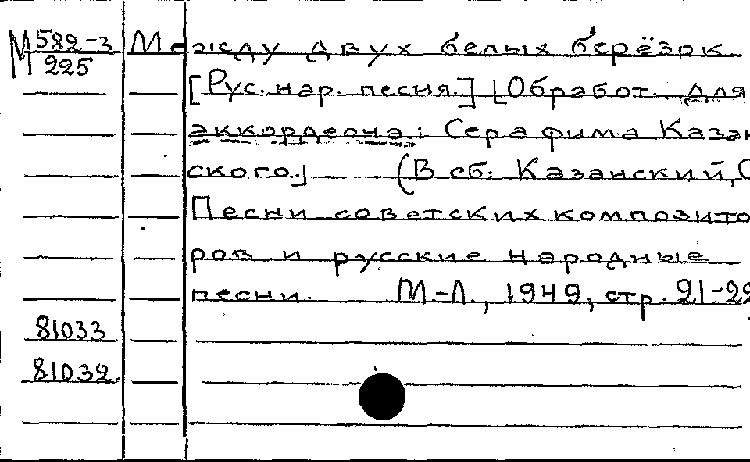 М 582-3 Между двух белых берёзок.
225
[Рус. нар. песня.] [Обработ. для
аккордеона: Серафима Казан
ского.] (В сб: Казанский, С
Песни советских композито
ров и русские народные
песни. М.-Л., 1949, стр. 21-22
81033
81032